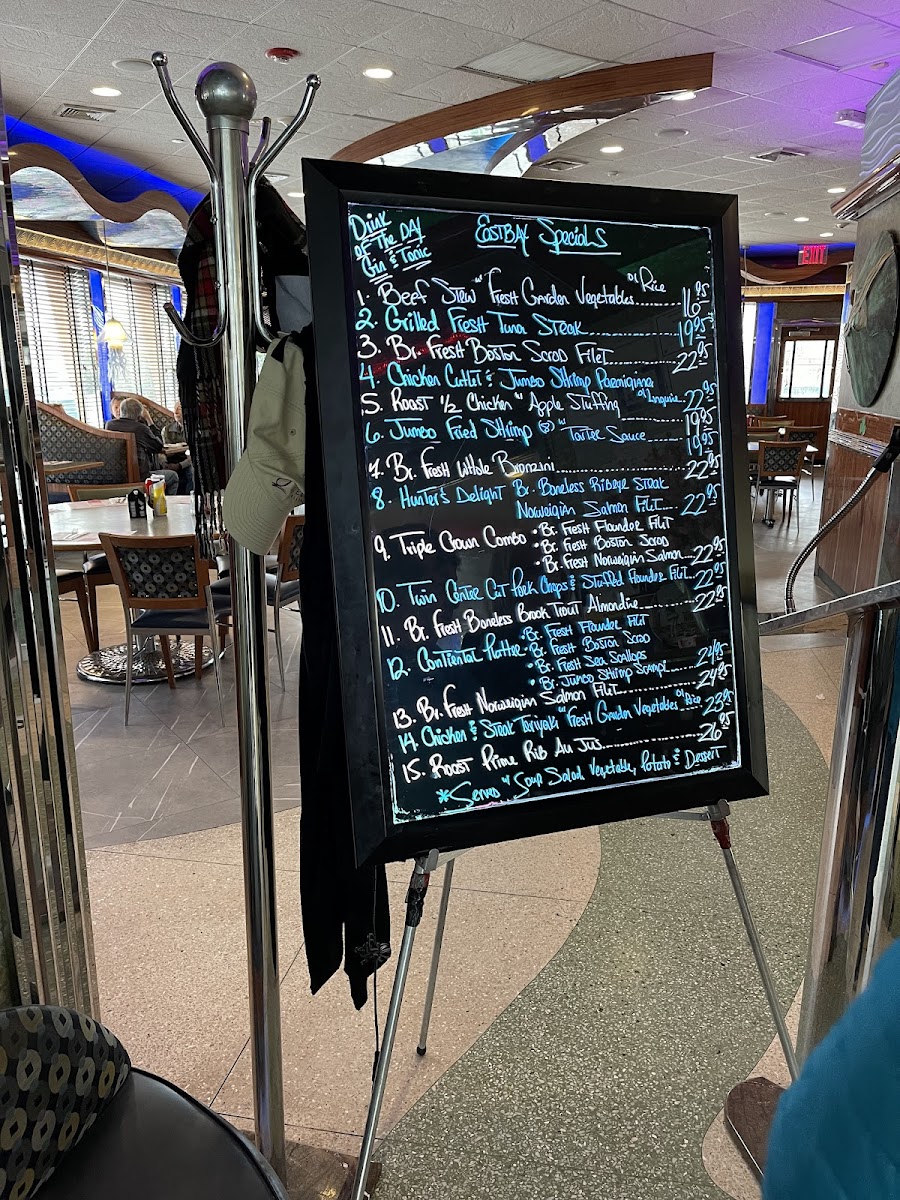 Drink
of The DAY
Gin & Tonic
EASTBAY Specials
1. Beef Stew w/ Fresh Garden Vegetables o/ Rice 16.95
2. Grilled Fresh Tuna Steak 19.95
3. Br. Fresh Boston Scrod Filet 22.95
4. Chicken Cutlet & Jumbo Shrimp Parmigiana
o/ Linguine 22.95
5. Roast 1/2 Chicken w/ Apple Stuffing 19.95
6. Jumbo Fried Shrimp (8) w/ Tarter Sauce 19.95
7. Br. Fresh Whole Bronzini 22.95
8. Hunter's Delight Br. Boneless Ribeye Steak
Norweigian Salmon Filet 22.95
9. Triple Crown Combo • Br. Fresh Flounder Filet
• Br. Fresh Boston Scrod
• Br. Fresh Norweigian Salmon 22.95
10. Twin Center Cut Pork Chops & Stuffed Flounder Filet 22.95
11. Br. Fresh Boneless Brook Trout Almondine 22.95
12. Continental Platter • Br. Fresh Flounder Filet
• Br. Fresh Boston Scrod
• Br. Fresh Sea Scallops
• Br. Jumbo Shrimp Scampi 24.95
13. Br. Fresh Norweigian Salmon Filet 24.95
14. Chicken & Steak Teriyaki w/ Fresh Garden Vegetables o/ Rice 23.95
15. Roast Prime Rib Au Jus 26.95
*Served w/ Soup Salad, Vegetable, Potato & Dessert
EXIT